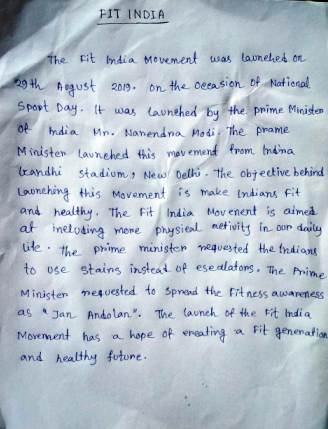 FIT INDIA
The Fit India Movement was launched on
29th August 2019. On the Occasion Of National
Sport Day. It was launched by the prime Minister
Of India Mr. Narendra Modi. The prame
Minister launched this movement from Indira
Gandhi stadium, New Delhi. The objective behind
Launching this Movement is make Indians Fit
and healthy. The Fit India Movement is aimed
at including more physical activity in our daily
life. The prime minister requested the Indians
to use stairs instead of escalators. The Prime
Minister requested to spread the Fitness awareness
as "Jan Andolan". The launch of the Fit India
Movement has a hope of creating a Fit generation
and healthy future.